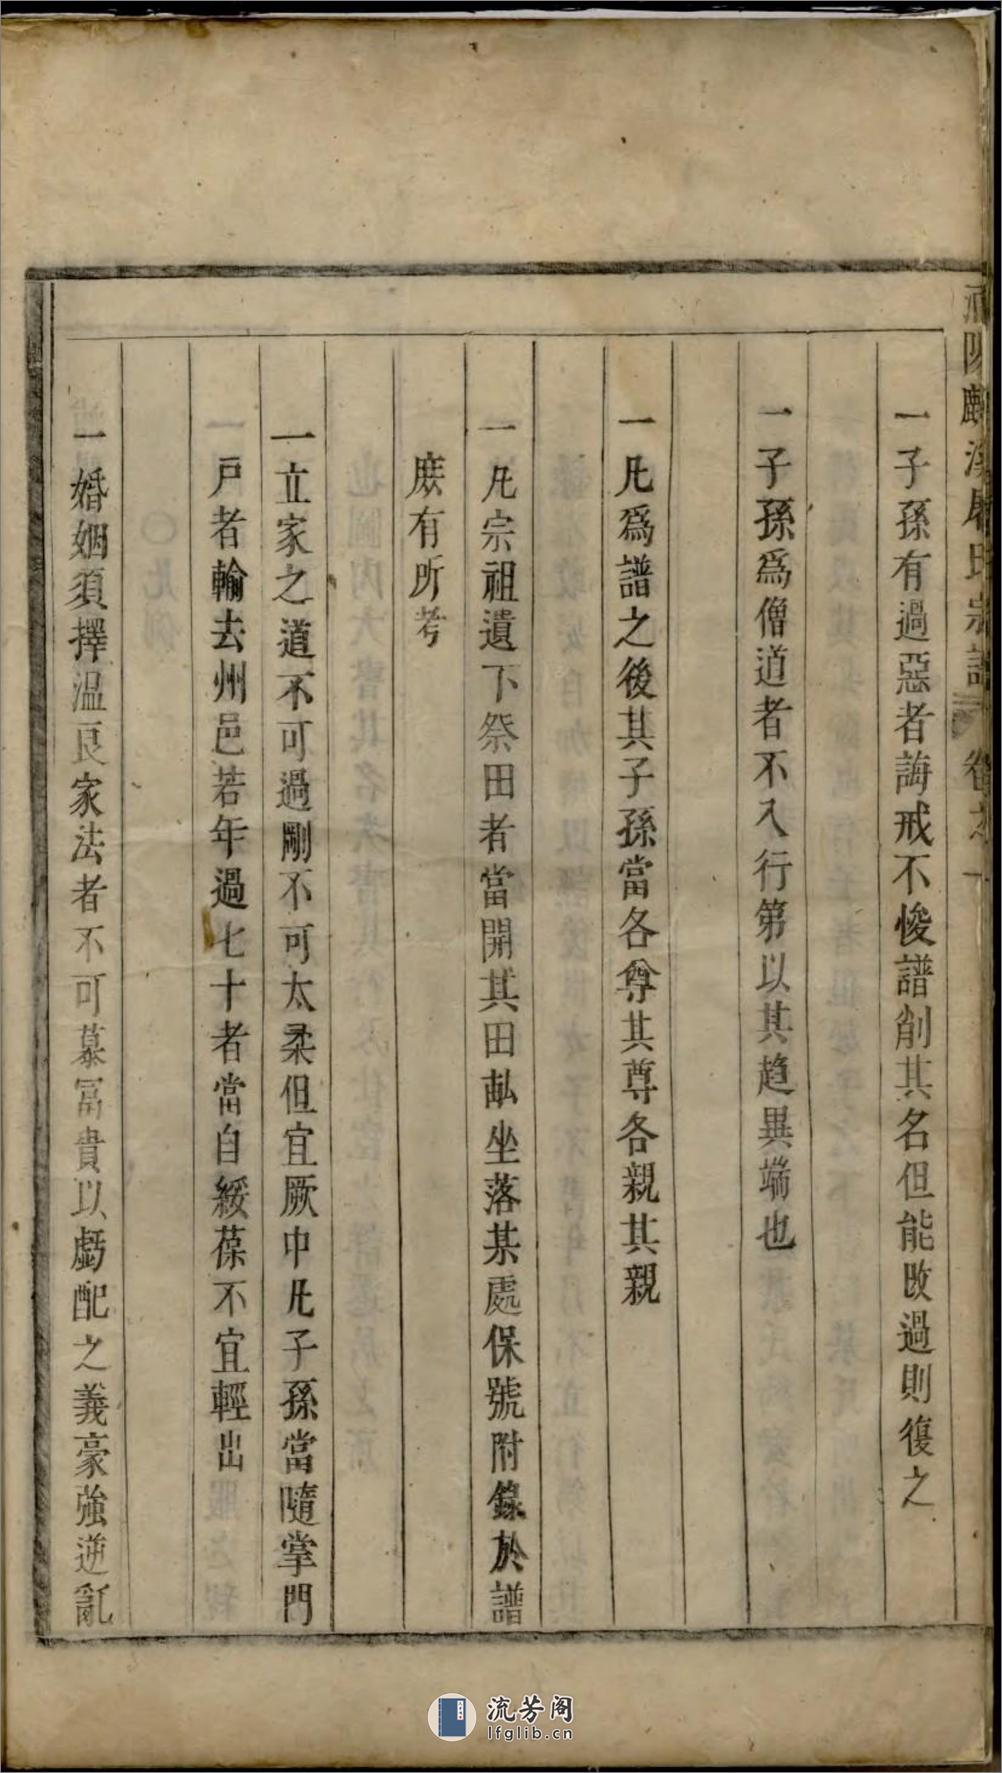 陽麟溪 氏宗譜 卷之一
一子孫有過惡者誨戒不悛譜削其名但能改過則復之
一子孫爲僧道者不入行第以其趨異端也
一凡爲譜之後其子孫當各尊其尊各親其親
一凡宗祖遺下祭田者當開其田畝坐落某處保號附錄於譜
庶有所考
一立家之道不可過剛不可太柔但宜厥中凡子孫當隨掌門
戶者輸去州邑若年過七十者當自綏葆不宜輕出
一婚姻須擇温良家法者不可慕冨貴以虧配之義豪強逆亂
流芳阁
lfglib.cn